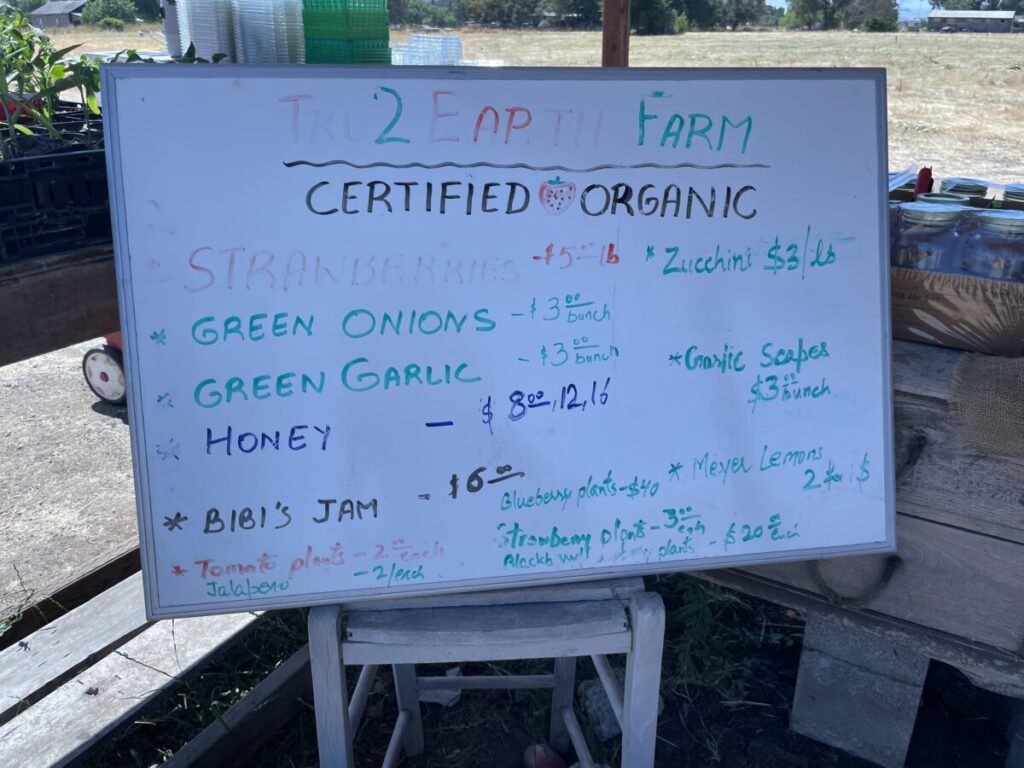 TRU 2 EARTH FARM
CERTIFIED ORGANIC
* STRAWBERRIES - $5.00 lb
* GREEN ONIONS - $3.00 bunch
* GREEN GARLIC - $3.00 bunch
* HONEY - $8.00, 12, 16
* BIBI'S JAM - $6.00
* Tomato plants - 2.00 each
Jalapeno - 2/each
* Zucchini $3/lb
* Garlic Scapes
$3.00 bunch
* Meyer Lemons
2 for 1$
Blueberry plants - $40
Strawberry plants - 3.00 each
plants - $20.00 each